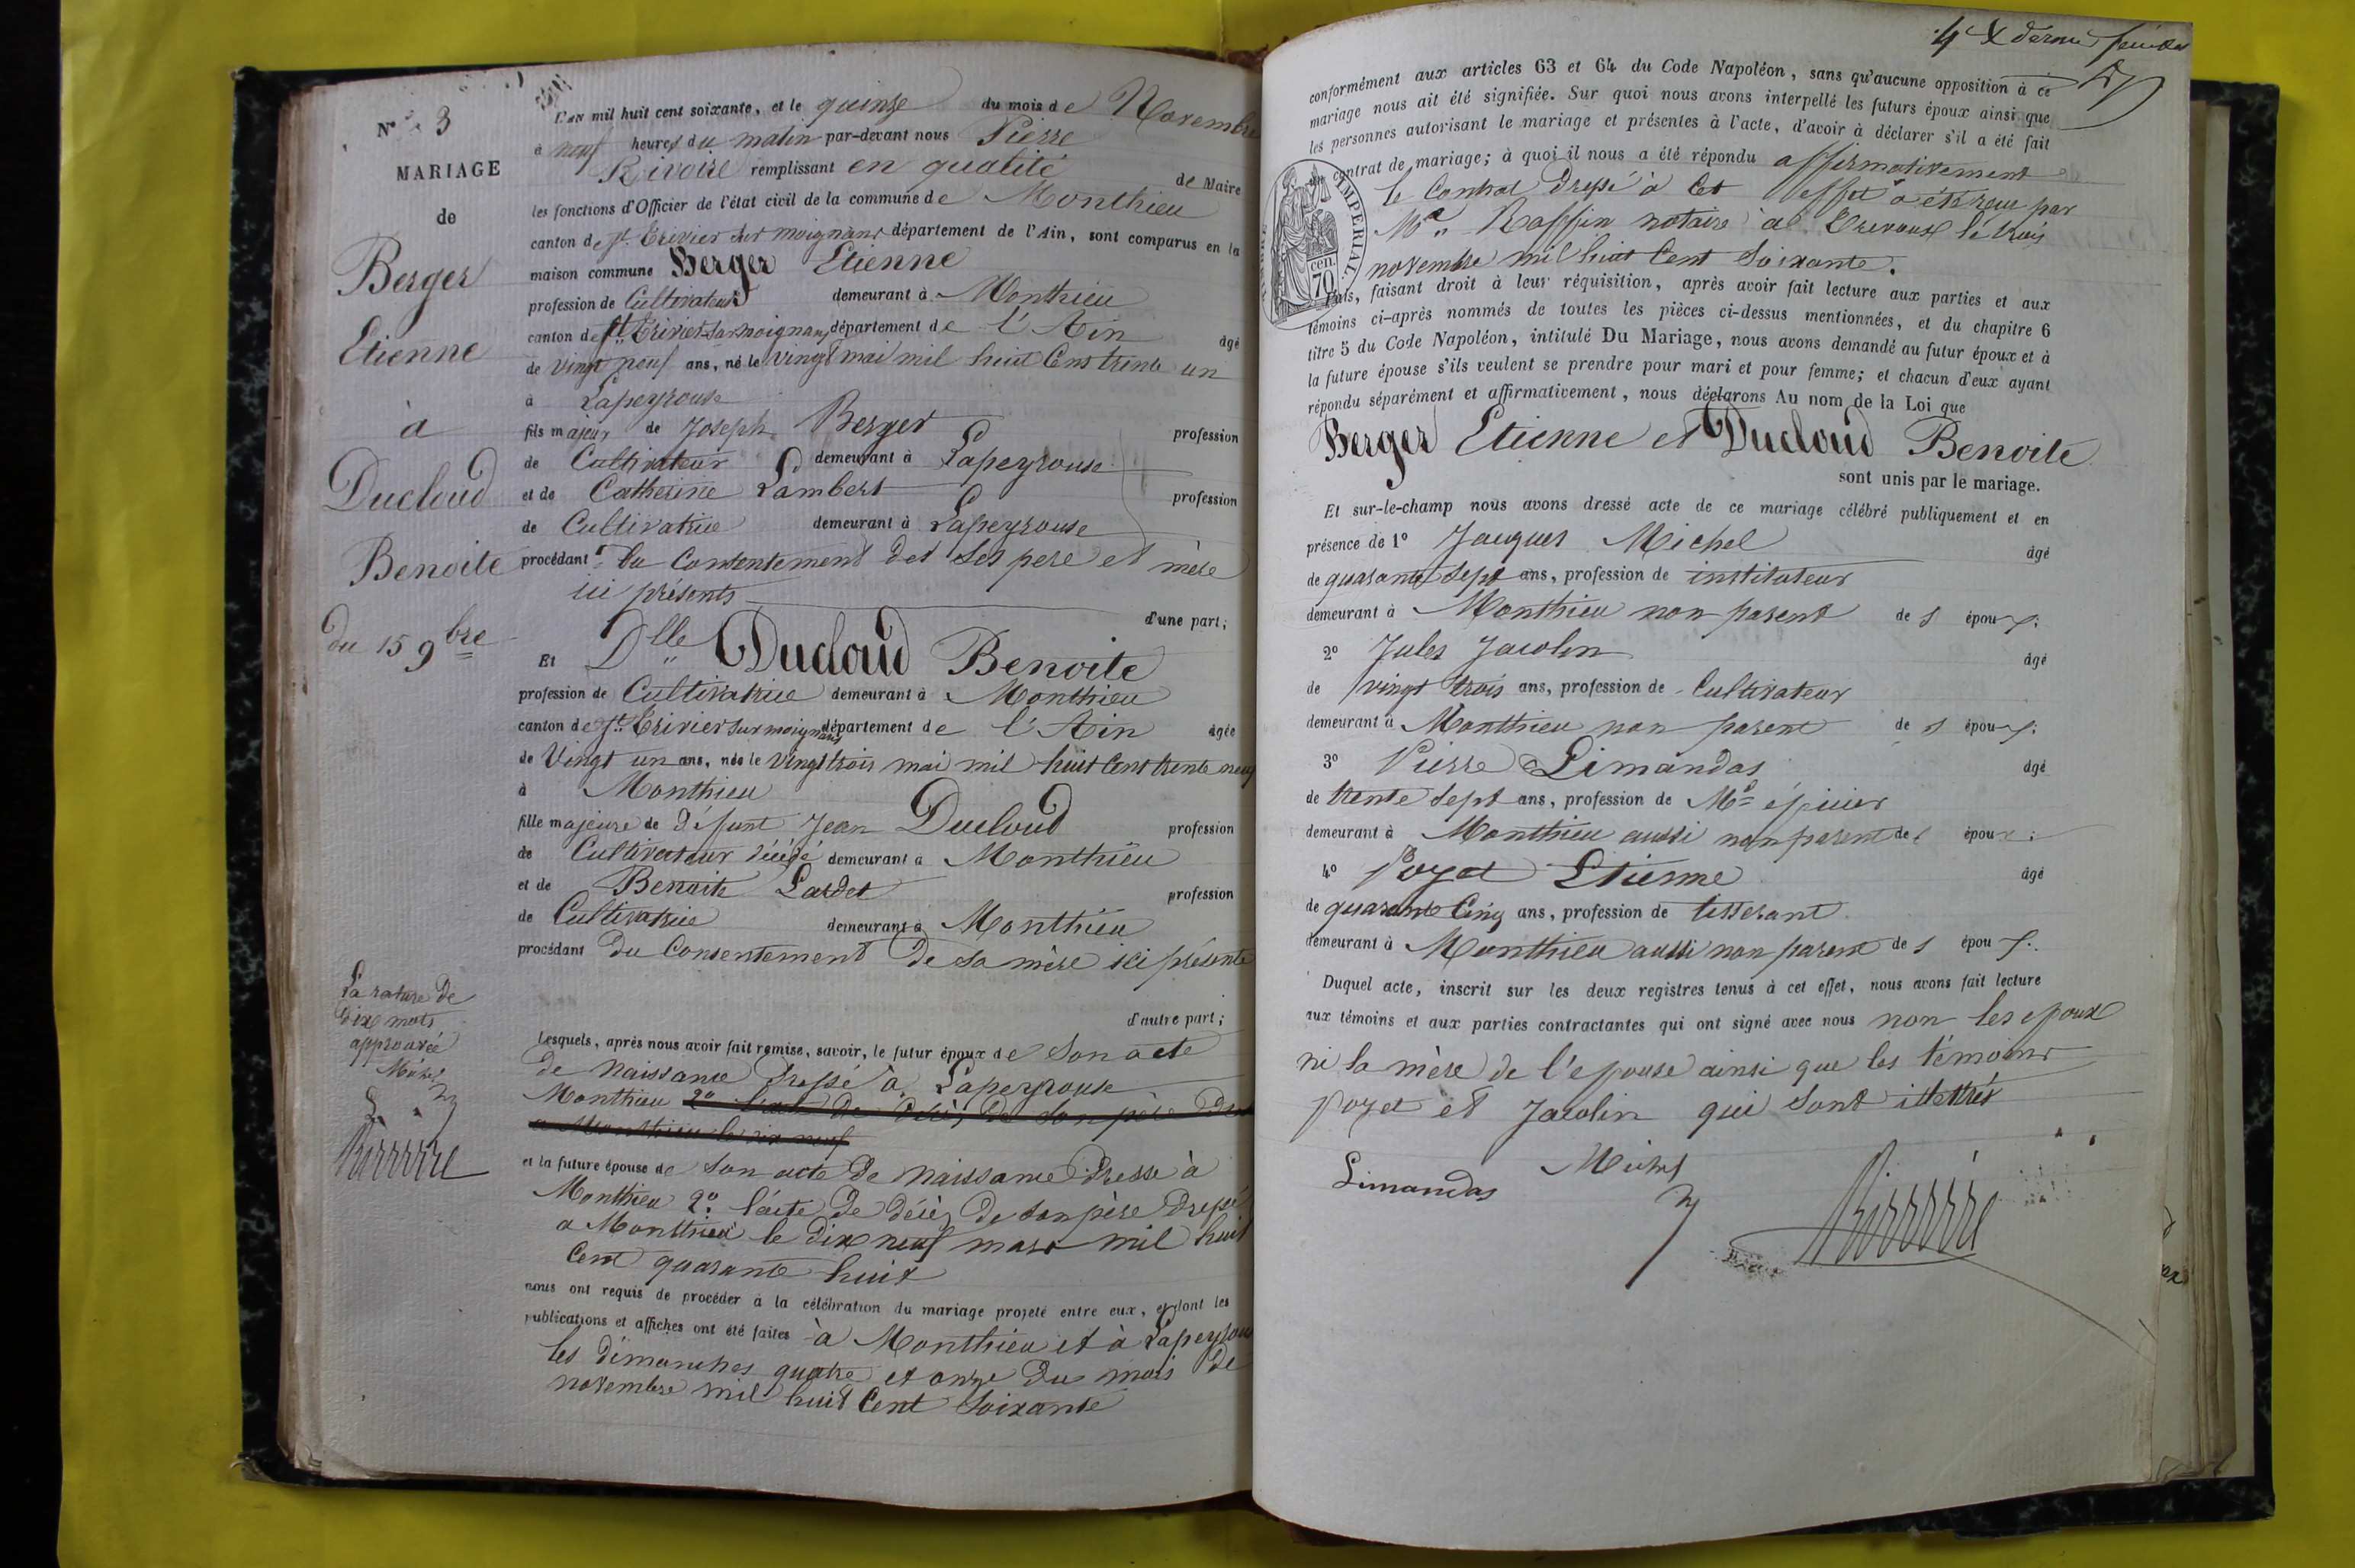 N° 3
MARIAGE
de
Berger
Etienne
à
Ducloud
Benoite
du 15 9bre
La rature de
dix mots
approuvée
Michel
Rivoire
L'an mil huit cent soixante, et le quinze du mois de Novembre
à neuf heures du matin par-devant nous Pierre
Rivoire remplissant en qualité de Maire
les fonctions d'Officier de l'état civil de la commune de Monthieu
canton de St. Trivier sur moignans département de l'Ain, sont comparus en la
maison commune Berger Etienne
profession de Cultivateur demeurant à Monthieu
canton de St. Trivier sur moignans département de l'Ain âgé
de vingt neuf ans, né le vingt mai mil huit Cent trente un
à Lapeyrouse
fils majeur de Joseph Berger profession
de Cultivateur demeurant à Lapeyrouse
et de Catherine Lambert profession
de Cultivatrice demeurant à Lapeyrouse
procédant du Consentement des ses pere et mère
ici présents
d'une part;
Et Dlle Ducloud Benoite
profession de Cultivatrice demeurant à Monthieu
canton de St. Trivier sur moignans département de l'Ain âgée
de Vingt un ans, née le vingt trois mai mil huit Cent trente neuf
à Monthieu
fille majeure de défunt Jean Ducloud profession
de Cultivateur décédé demeurant à Monthieu
et de Benoite Lardet profession
de Cultivatrice demeurant à Monthieu
procédant du Consentement de sa mère ici présente
d'autre part;
Lesquels, après nous avoir fait remise, savoir, le futur époux de son acte
de naissance dressé à Lapeyrouse
Monthieu 2° l'acte de décès de son père
a Monthieu le dix neuf
et la future épouse de son acte de naissance dressé à
Monthieu 2° l'acte de décès de son père dressé
a Monthieu le dix neuf mars mil huit
Cent quarante huit
nous ont requis de procéder à la célébration du mariage projeté entre eux, et dont les
publications et affiches ont été faites à Monthieu et à Lapeyrouse
les dimanches quatre et onze du mois de
novembre mil huit Cent soixante
feuillet
conformément aux articles 63 et 64 du Code Napoléon, sans qu'aucune opposition à ce
mariage nous ait été signifiée. Sur quoi nous avons interpellé les futurs époux ainsi que
les personnes autorisant le mariage et présentes à l'acte, d'avoir à déclarer s'il a été fait
un contrat de mariage; à quoi il nous a été répondu affirmativement
le Contrat dressé à Cet effet a été reçu par
Me Raffin notaire à Trevoux le trois
novembre mil huit Cent soixante.
TIMBRE IMPERIAL
cen.
70
Puis, faisant droit à leur réquisition, après avoir fait lecture aux parties et aux
témoins ci-après nommés de toutes les pièces ci-dessus mentionnées, et du chapitre 6
titre 5 du Code Napoléon, intitulé Du Mariage, nous avons demandé au futur époux et à
la future épouse s'ils veulent se prendre pour mari et pour femme; et chacun d'eux ayant
répondu séparément et affirmativement, nous déclarons Au nom de la Loi que
Berger Etienne et Ducloud Benoite
sont unis par le mariage.
Et sur-le-champ nous avons dressé acte de ce mariage célébré publiquement et en
présence de 1° Jacques Michel âgé
de quarante sept ans, profession de instituteur
demeurant à Monthieu non parent de s époux.
2° Jules Jacolin âgé
de vingt trois ans, profession de Cultivateur
demeurant à Monthieu non parent de s époux.
3° Pierre Limandas âgé
de trente sept ans, profession de Md épicier
demeurant à Monthieu aussi non parent de s époux;
4° Poyet Etienne âgé
de quarante Cinq ans, profession de tisserant
demeurant à Monthieu aussi non parent de s époux.
Duquel acte, inscrit sur les deux registres tenus à cet effet, nous avons fait lecture
aux témoins et aux parties contractantes qui ont signé avec nous non les epoux
ni la mère de l'epouse ainsi que les témoins
poyet et Jacolin qui sont illettrés
Limandas Michel Rivoire